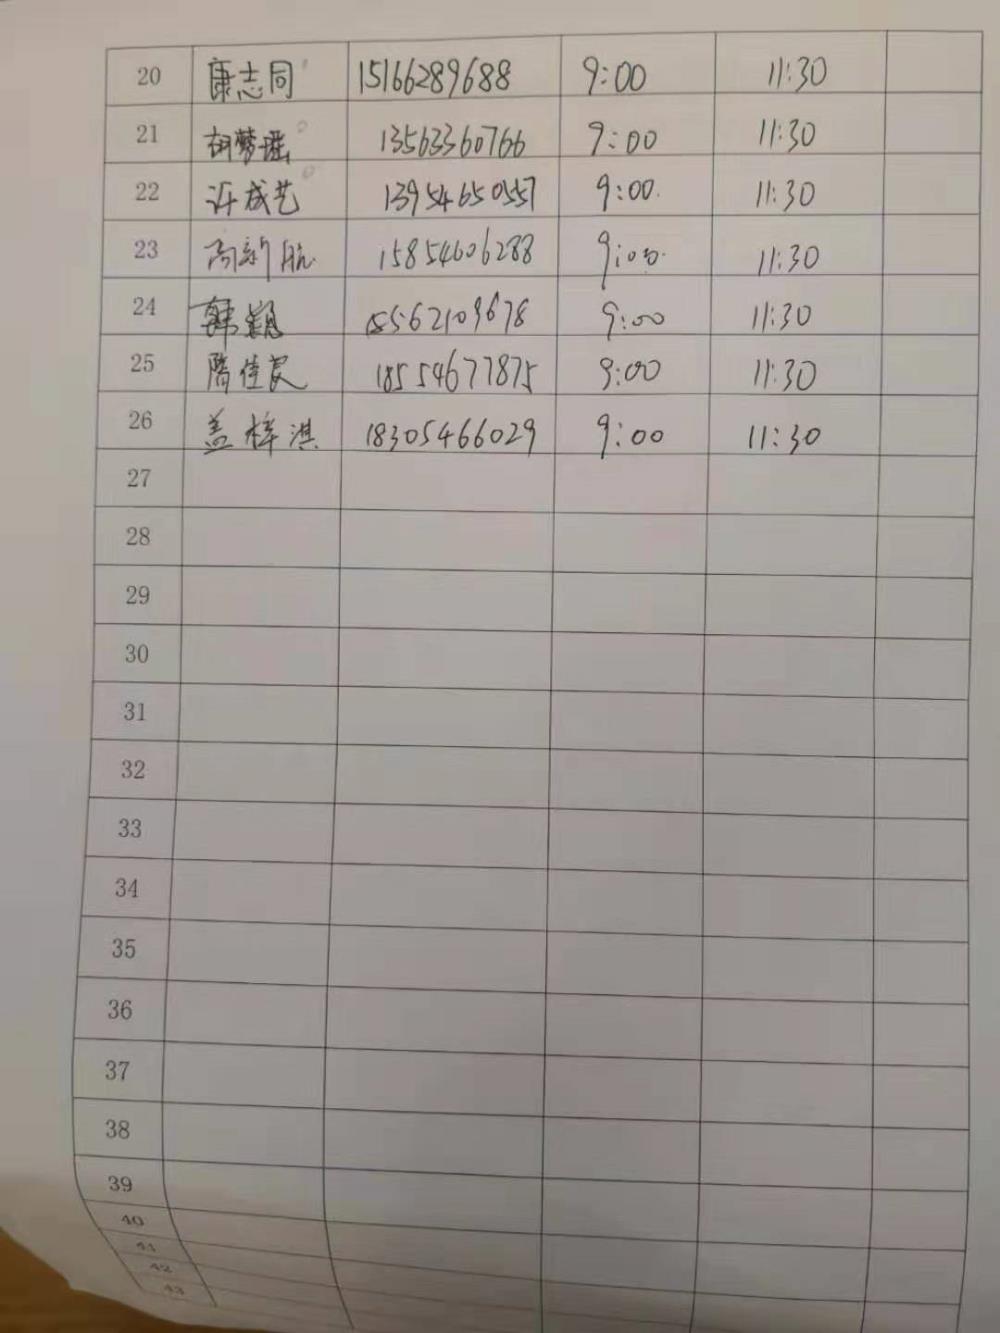 20 康志同 15166289688 9:00 11:30
21 胡梦瑶 13563360766 9:00 11:30
22 许成艺 13954650557 9:00. 11:30
23 高新航. 15854606288 9:00. 11:30
24 韩颖 15562109678 9:00 11:30
25 隋佳良 18554677875 9:00 11:30
26 盖梓淇 18305466029 9:00 11:30
27
28
29
30
31
32
33
34
35
36
37
38
39
40
41
42
43